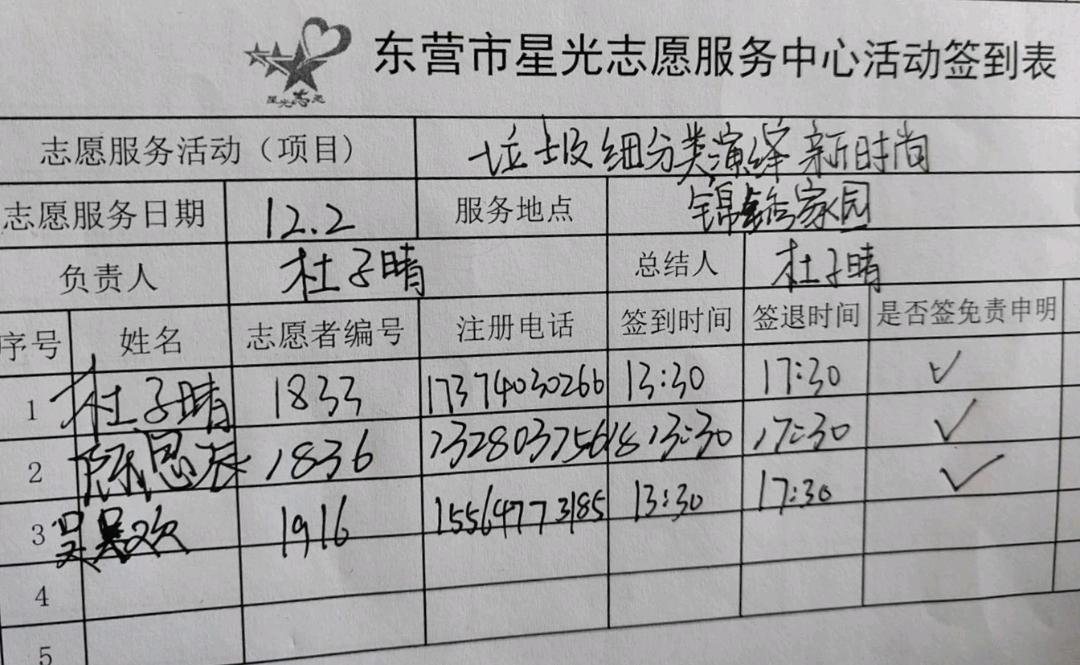 东营市星光志愿服务中心活动签到表
星光志愿
志愿服务活动（项目） 垃圾细分类演绎新时尚
志愿服务日期 12.2 服务地点 锦 家园
负责人 杜子晴 总结人 杜子晴
序号 姓名 志愿者编号 注册电话 签到时间 签退时间 是否签免责申明
1 杜子晴 1833 17374030266 13:30 17:30 ✓
2 陈思辰 1836 13280375618 13:30 17:30 ✓
3 吴 欢 1916 15564773185 13:30 17:30 ✓
4
5